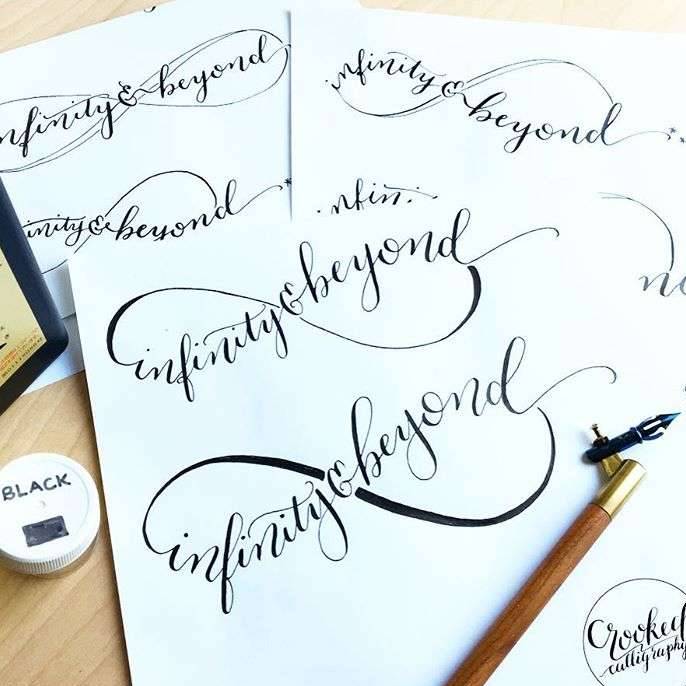 infinity & beyond
infinity & beyond
infinity & beyond
infinity & beyond
infinity & beyond
BLACK
Crooked
calligraphy